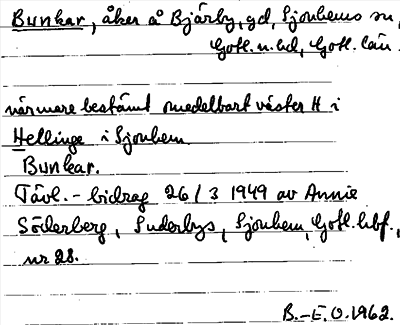 Bunkar, åker å Bjärby, gd, Sjonhems sn,
Gotl. n. hd, Gotl. län.
närmare bestämt omedelbart väster H i
Hellinge i Sjonhem.
Bunkar.
Tävl. - bidrag 26/3 1949 av Annie
Söderberg, Suderbys, Sjonhem, Gotl. hbf.,
nr 28.
B.-E. O. 1962.